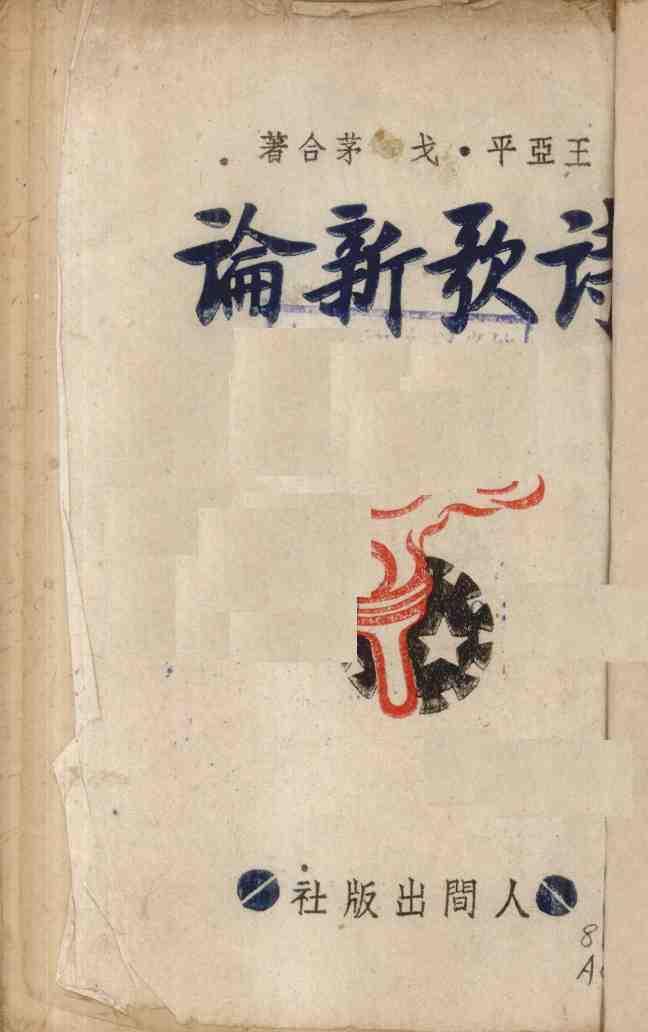 王亞平・戈 茅合著
詩歌新論
人間出版社
8
A